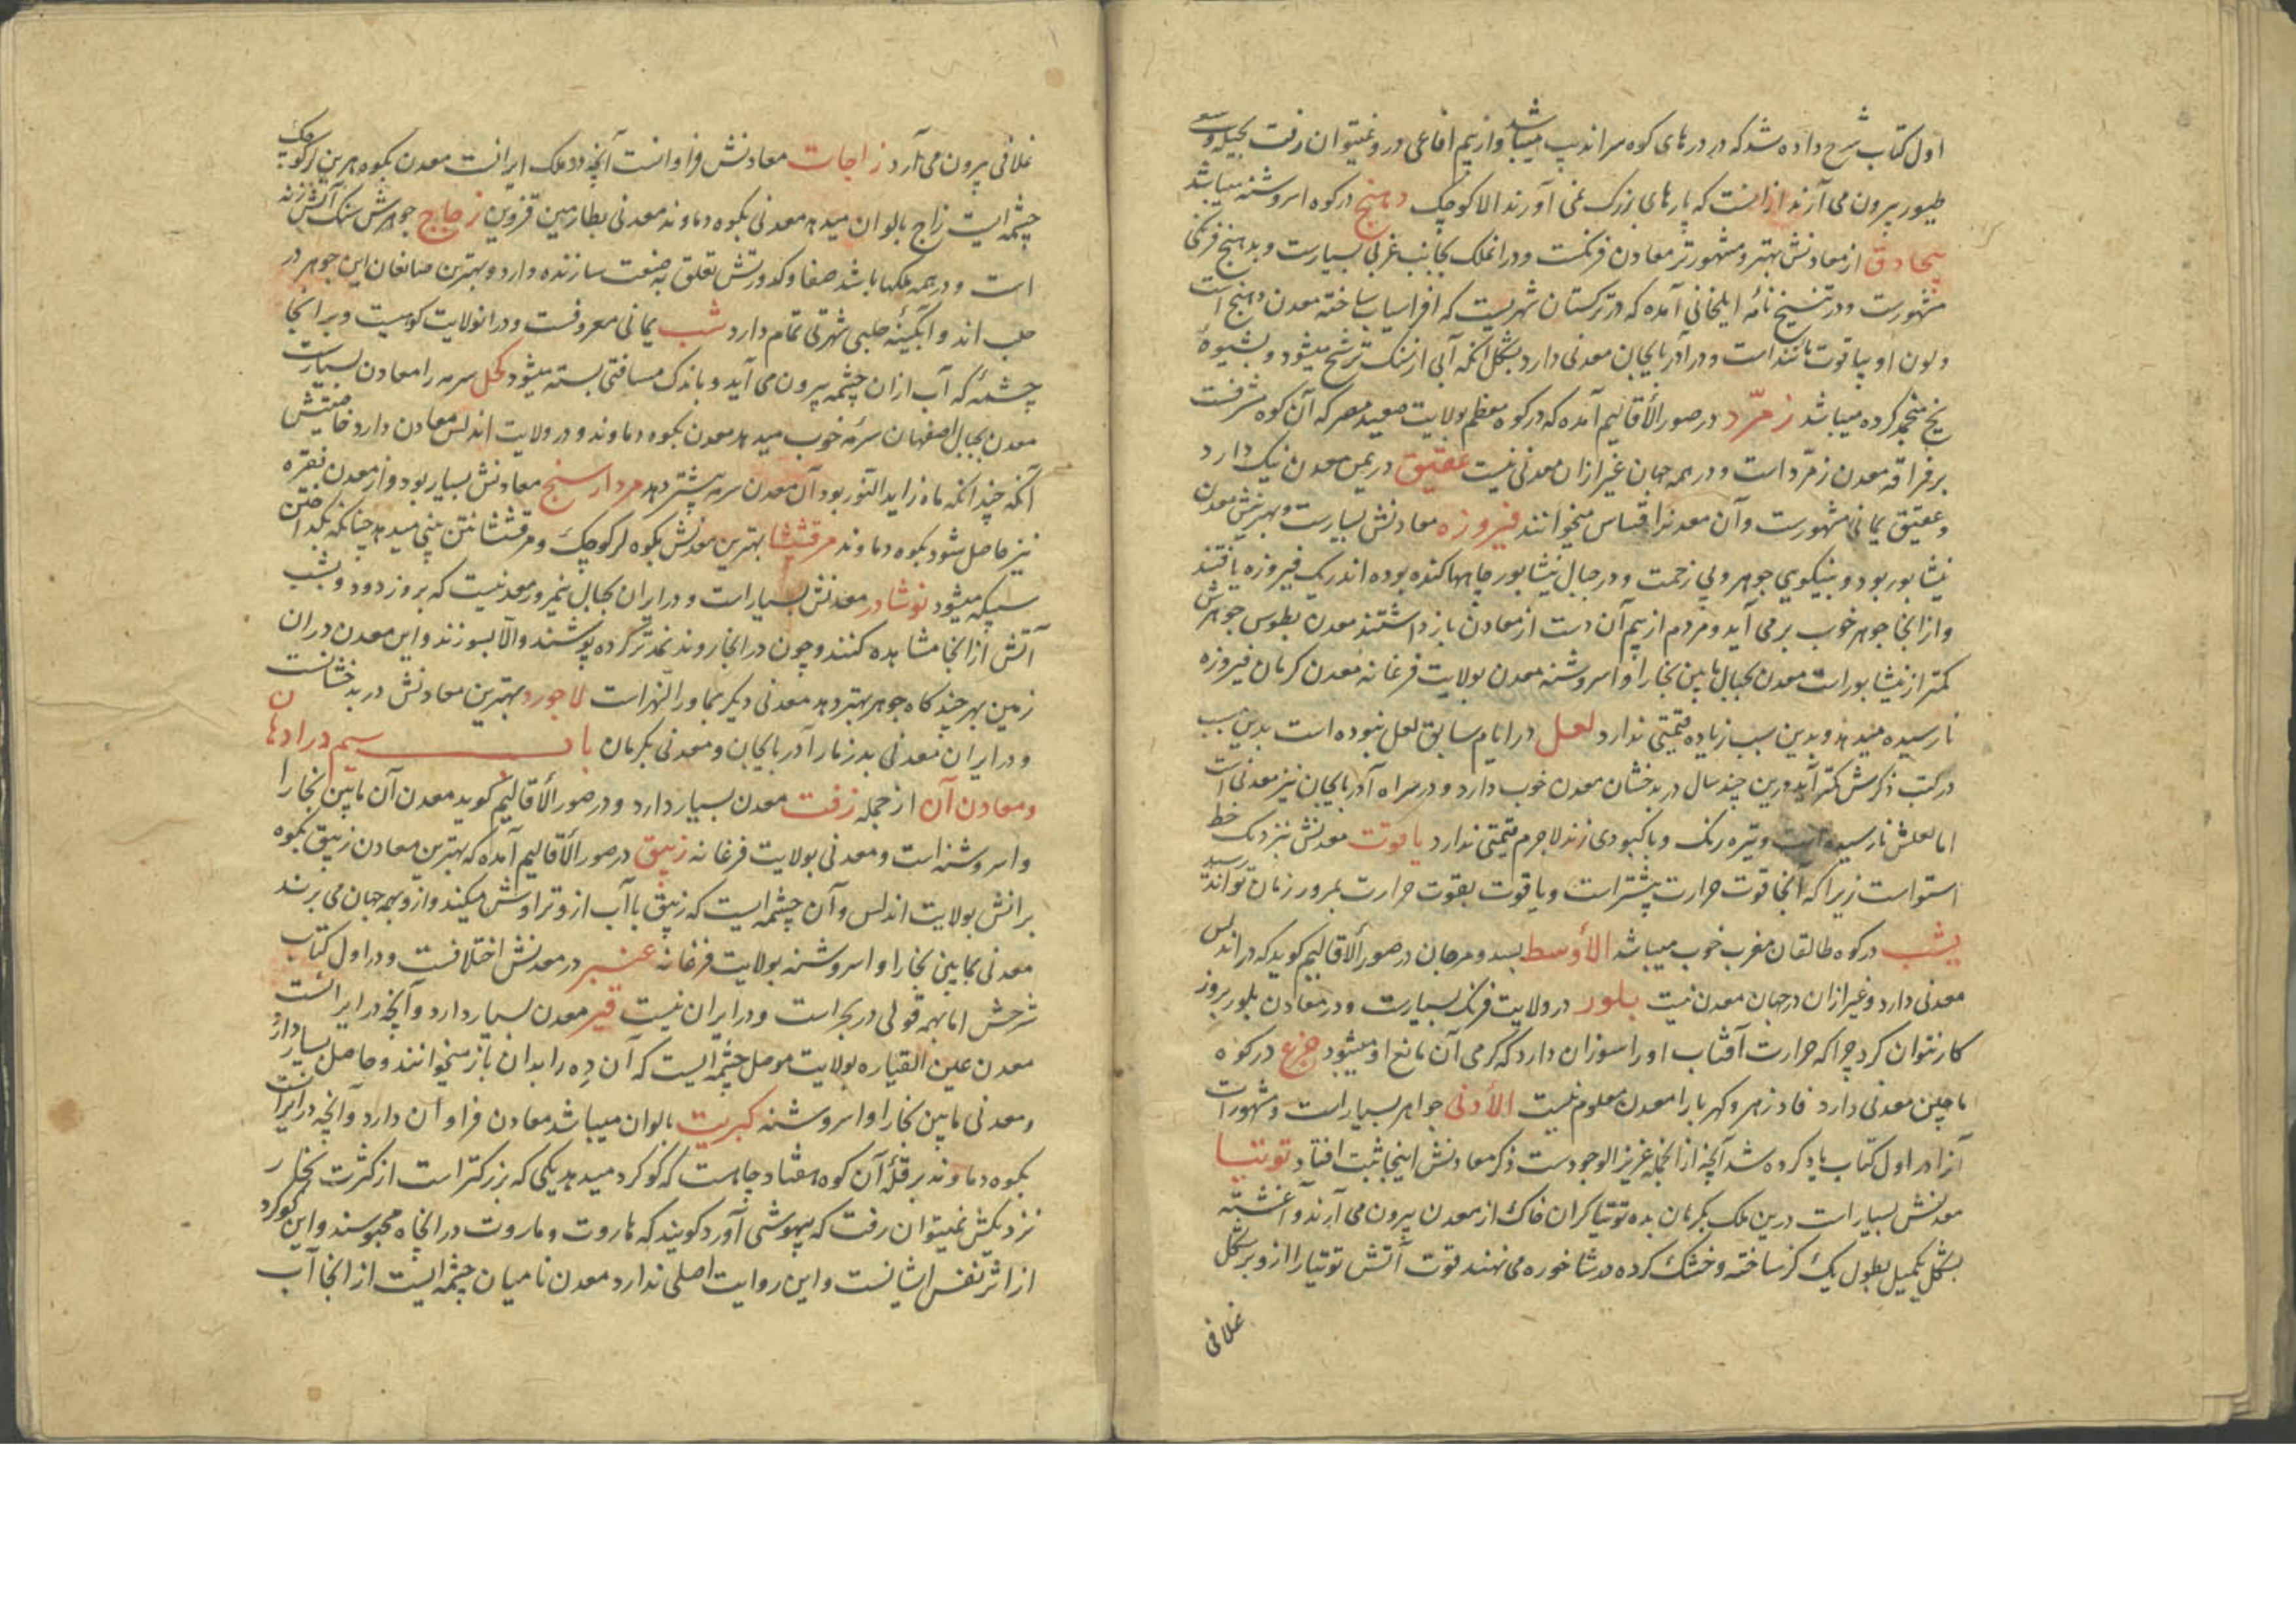 اول کتاب شرح داده شد که در درهای کوه سراندیب میباشد و از بیم افاعی در و نمیتوان رفت بحیله و سعی
طیور بیرون می آرند ازانست که پارهای بزرک نمی آورند الا کوچک دهنج در کوه اسروشنه میباشد
بیجادق از معادنش بهتر و مشهورتر معادن فرنکست و در انملک بجانب غربی بسیارست و بدهنج فرنکی
مشهورست و در تنسیخ نامهٔ ایلخانی آمده که در ترکستان شهریست که افراسیاب ساخته معدن دهنج است
و لون او بیاقوت مانند است و در آذربایجان معدنی دارد بشکل آنکه آبی از سنک ترشح میشود و بشیوهٔ
یخ منجمد کرده میباشد زمرّد در صور الأقالیم آمده که در کوه معظم بولایت صعید مصر که آن کوه مشرفست
بر فراقه معدن زمرّد است و در همه جهان غیر ازان معدنی نیست عقیق در یمن معدن نیک دارد
و عقیق یمانی مشهورست و آن معدنرا قساس میخوانند فیروزه معادنش بسیارست و بهترینش معدن
نیشابور بود و بنیکویی جوهر و بی زحمت و در جبال نیشابور چاهها کنده بوده اند ریک فیروزه یافتند
و از انجا جوهر خوب بر می آید و مردم از بیم آن دست از معادن باز داشتند معدن بطوس جوهرش
کمتر از نیشابور است معدن بجبال مابین بخارا و اسروشنه معدن بولایت فرغانه معدن کرمان فیروزه
نارسیده میدهد و بدین سبب زیاده قیمتی ندارد لعل در ایّام سابق لعل نبوده است بدین سبب
در کتب ذکرش کمتر آید و درین چند سال در بدخشان معدن خوب دارد و در سراه آذربایجان نیز معدنی است
اما لعلش نارسیده است و تیره رنک و با کبودی زند لاجرم قیمتی ندارد یاقوت معدنش نزدیک خط
استواست زیرا که آنجا قوت حرارت بیشتر است و یاقوت بقوت حرارت بمرور زمان تواند رسید
یشب در کوه طالقان مغرب خوب میباشد الأوسط بسد و مرجان در صور الاقالیم کوید که در اندلس
معدنی دارد و غیر ازان در جهان معدن نیست بلور در ولایت فرنک بسیارست و در معادن بلور بروز
کار نتوان کرد چرا که حرارت آفتاب او را سوزان دارد که کرمی آن مانع او میشود جزع در کوه
ماچین معدنی دارد فادزهر و کهربا را معدن معلوم نیست الأدنی جواهر بسیار است و مشهورات
آنرا در اول کتاب یاد کرده شد آنچه از انجمله عزیز الوجودست ذکر معادنش اینجا ثبت افتاد توتیا
معدنش بسیار است درین ملک بکرمان بده توتیا کران خاک از معدن بیرون می آرند و آغشته
بشکل یکمیل بطول یک کز ساخته و خشک کرده در شاخوره می نهند قوت آتش توتیا را از و بر شکل
غلافی
غلافی بیرون می آرد زاجات معادنش فراوانست آنچه در ملک ایرانست معدن بکوه هرین لر کوچک
چشمه ایست زاج بالوان میدهد معدنی بکوه دماوند معدنی بطارمین قزوین زجاج جوهرش سنک آتش زنه
است و در همه ملکها باشد صفا و کدورتش تعلق به صنعت سازنده دارد و بهترین صانعان این جوهر در
حلب اند و آبکینهٔ حلبی شهرتی تمام دارد شب یمانی معروفست و در انولایت کوهیست و بر انجا
چشمهٔ که آب ازان چشمه بیرون می آید و باندک مسافتی بسته میشود کحل سرمه را معادن بسیارست
معدن بجبال اصفهان سرمهٔ خوب میدهد معدن بکوه دماوند و در ولایت اندلس معادن دارد خاصیتش
آنکه چندانکه ماه زاید النور بود آن معدن سرمه بیشتر دهد مردارسنج معادنش بسیار بود و از معدن نقره
نیز حاصل شود بکوه دماوند مرقشیثا بهترین معدنش بکوه لر کوچک و مرقشیثا نتن پنی میدهد چنانکه بکداختن
سبیکه میشود نوشادر معدنش بسیار است و در ایران بجبال نیمروز معدنیست که بروز دود و بشب
آتش از انجا مشاهده کنند و چون در انجا روند نمد تر کرده پوشند والّا بسوزند و این معدن در ان
زمین بهر چند کاه جوهر بهتر دهد معدنی دیکر بماورالنهر است لاجورد بهترین معادنش در بدخشانست
و در ایران معدنی بدزمار آذربایجان و معدنی بکرمان باب سیم در ادهان
و معادن آن از جمله زفت معدن بسیار دارد و در صور الأقالیم کوید معدن آن مابین بخارا
و اسروشنه است و معدنی بولایت فرغانه زیبق در صور الأقالیم آمده که بهترین معادن زیبق بکوه
برانش بولایت اندلس و آن چشمه ایست که زیبق با آب از و تراوش میکند و از و بهمه جهان می برند
معدنی بمابین بخارا و اسروشنه بولایت فرغانه عنبر در معدنش اختلافست و در اول کتاب
شرحش اما بهمه قولی در بحر است و در ایران نیست قیر معدن بسیار دارد و آنچه در ایرانست
معدن عین القیاره بولایت موصل چشمه ایست که آن ده را بدان باز میخوانند و حاصل بسیار دارد
و معدنی مابین بخارا و اسروشنه کبریت بالوان میباشد معادن فراوان دارد و آنچه در ایرانست
بکوه دماوند بر قلهٔ آن کوه هفتاد چاهست که کوکرد میدهد یکی که بزرکتر است از کثرت بخار
نزدیکش نمیتوان رفت که بیهوشی آورد کویند که هاروت و ماروت در انچاه محبوسند و این کوکرد
از اثر نفس ایشانست و این روایت اصلی ندارد معدن نامیان چشمه ایست از انجا آب